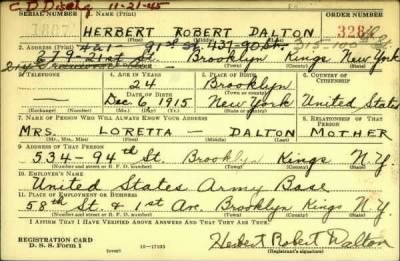 C D Dischg 11-21-45
SERIAL NUMBER 1. NAME (Print) ORDER NUMBER
HERBERT ROBERT DALTON 328
(First) (Middle) (Last)
2. ADDRESS (Print)
91st St. 431-90 St. 315-100
679-21st St. Brooklyn Kings New York
(Number and street or R. F. D. number) (Town) (County) (State)
3. TELEPHONE 4. AGE IN YEARS 5. PLACE OF BIRTH 6. COUNTRY OF CITIZENSHIP
24 Brooklyn
DATE OF BIRTH (Town or county)
Dec. 6 1915 New York United States
(Exchange) (No.) (Mo.) (Day) (Yr.) (State or country)
7. NAME OF PERSON WHO WILL ALWAYS KNOW YOUR ADDRESS 8. RELATIONSHIP OF THAT PERSON
MRS. LORETTA — DALTON MOTHER
(Mr., Mrs., Miss) (First) (Middle) (Last)
9. ADDRESS OF THAT PERSON
534-94th St. Brooklyn Kings N.Y.
(Number and street or R. F. D. number) (Town) (County) (State)
10. EMPLOYER'S NAME
United States Army Base
11. PLACE OF EMPLOYMENT OR BUSINESS
58th St. & 1st Ave. Brooklyn Kings N.Y.
(Number and street or R. F. D. number) (Town) (County) (State)
I AFFIRM THAT I HAVE VERIFIED ABOVE ANSWERS AND THAT THEY ARE TRUE.
REGISTRATION CARD
D. S. S. Form 1 (over) 16-17105 Herbert Robert Dalton
(Registrant's signature)